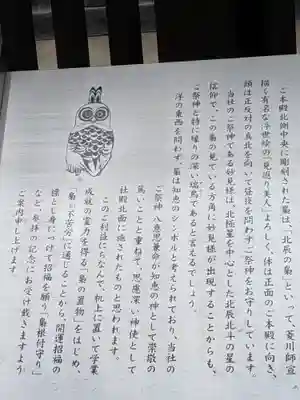 ご本殿北側中央に彫刻された梟は、「北辰の梟」といって、菱川師宣
描く有名な浮世絵の「見返り美人」よろしく、体は正面のご本殿に向き、
顔は正反対の真北を向いて昼夜を問わず、ご祭神をお守りしています。
当社のご祭神である妙見様は、北極星を中心とした北辰北斗の星の
信仰で、この梟の見ている方角に妙見様が出現することからも、
ご祭神と特に縁りの深い瑞鳥であると言えるでしょう。
洋の東西を問わず、梟は知恵のシンボルと考えられており、当社の
ご祭神八意思兼命が知恵の神として崇敬の
篤いことと重ねて、思慮深い神使として
社殿北面に施されたものと思われます。
このご利益にちなんで、机上に置いて学業
成就の霊力を得る「梟の置物」をはじめ、
「梟=不苦労」に通じることから、開運招福の
標として身につけて招福を願う「梟根付守り」
など、参拝の記念にお受け戴きますよう
ご案内申し上げます。